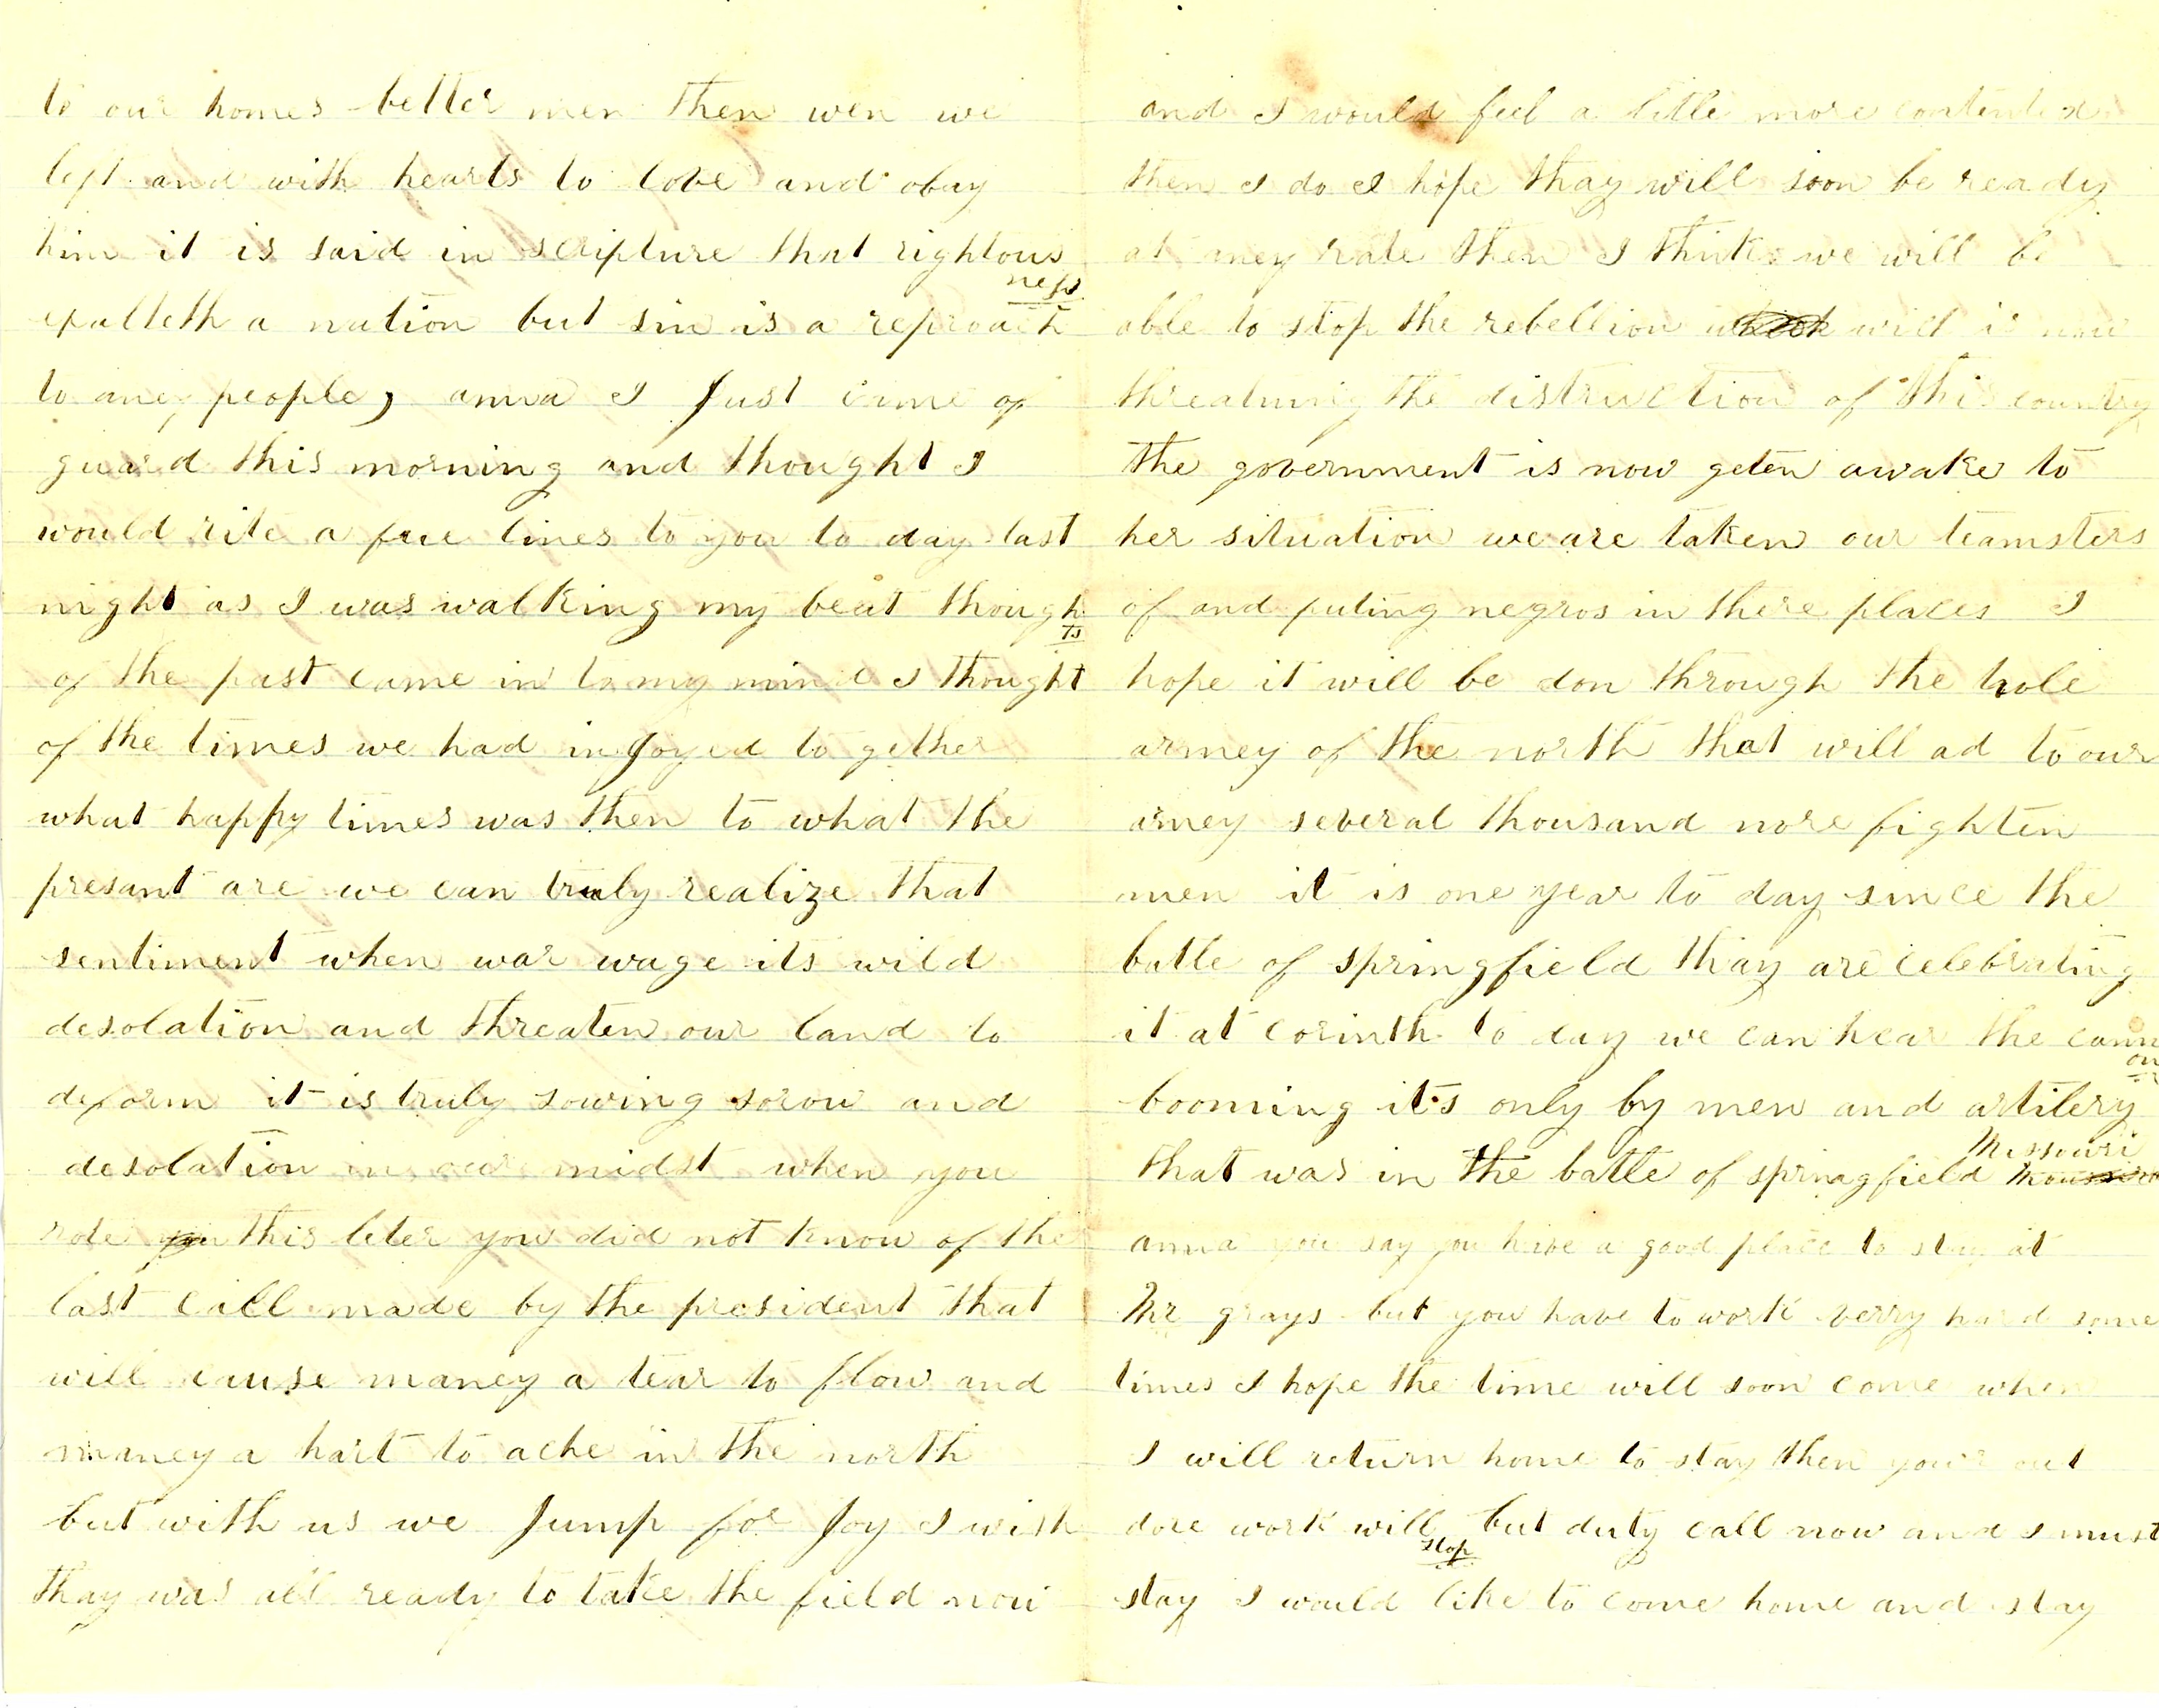 to our homes better men then wen we
left and with hearts to love and obay
him it is said in scripture that rightous
ness
exalteth a nation but sin is a reproach
to aney people, anna I Just came of
guard this morning and thought I
would rite a fue lines to you to day last
night as I was walking my beat though
ts
of the past came in to my mind I thought
of the times we had in Joyed to gether
what happy times was then to what the
presant are we can truly realize that
sentiment when war wage its wild
desolation and threaten our land to
deform it is truly sowing sorow and
desolation in our midst when you
rote this leter you did not know of the
last call made by the president that
will cause maney a tear to flow and
maney a hart to ache in the north
but with us we Jump for Joy I wish
thay was all ready to take the field now
and I would feel a little more contented
then I do I hope thay will soon be ready
at aney rate then I think we will be
able to stop the rebellion wich is now
threatning the distruction of this country
the government is now geten awake to
her situation we are taken our teamsters
of and puting negros in there places I
hope it will be don through the hole
armey of the north that will ad to our
armey several thousand more fighten
men it is one year to day since the
batle of springfield thay are celebrating
it at corinth to day we can hear the cann
on
booming it's only by men and artilery
Missouri
that was in the batle of springfield
anna you say you have a good place to stay at
Mr grays but you have to work verry hard some
times I hope the time will soon come when
I will return home to stay then your out
dore work will but duty call now and I must
stop
stay I would like to come home and stay